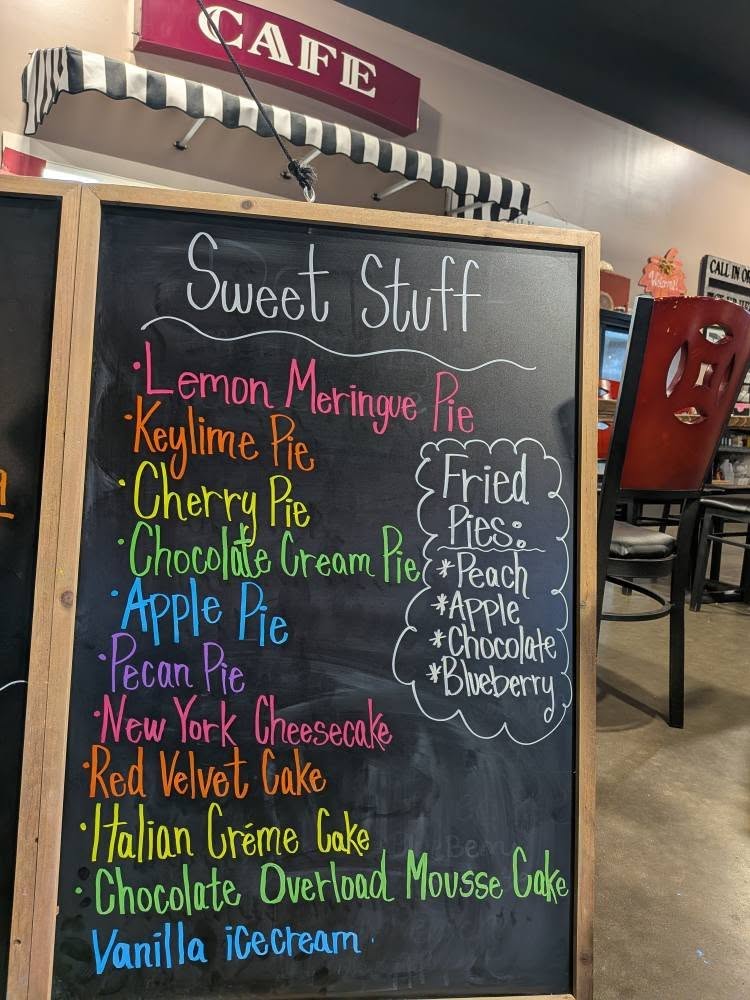 CAFE
Sweet Stuff
·Lemon Meringue Pie
·Keylime Pie
·Cherry Pie
·Chocolate Cream Pie
·Apple Pie
·Pecan Pie
·New York Cheesecake
·Red Velvet Cake
·Italian Créme Cake
·Chocolate Overload Mousse Cake
Vanilla icecream
Fried
Pies:
*Peach
*Apple
*Chocolate
*Blueberry
CALL IN